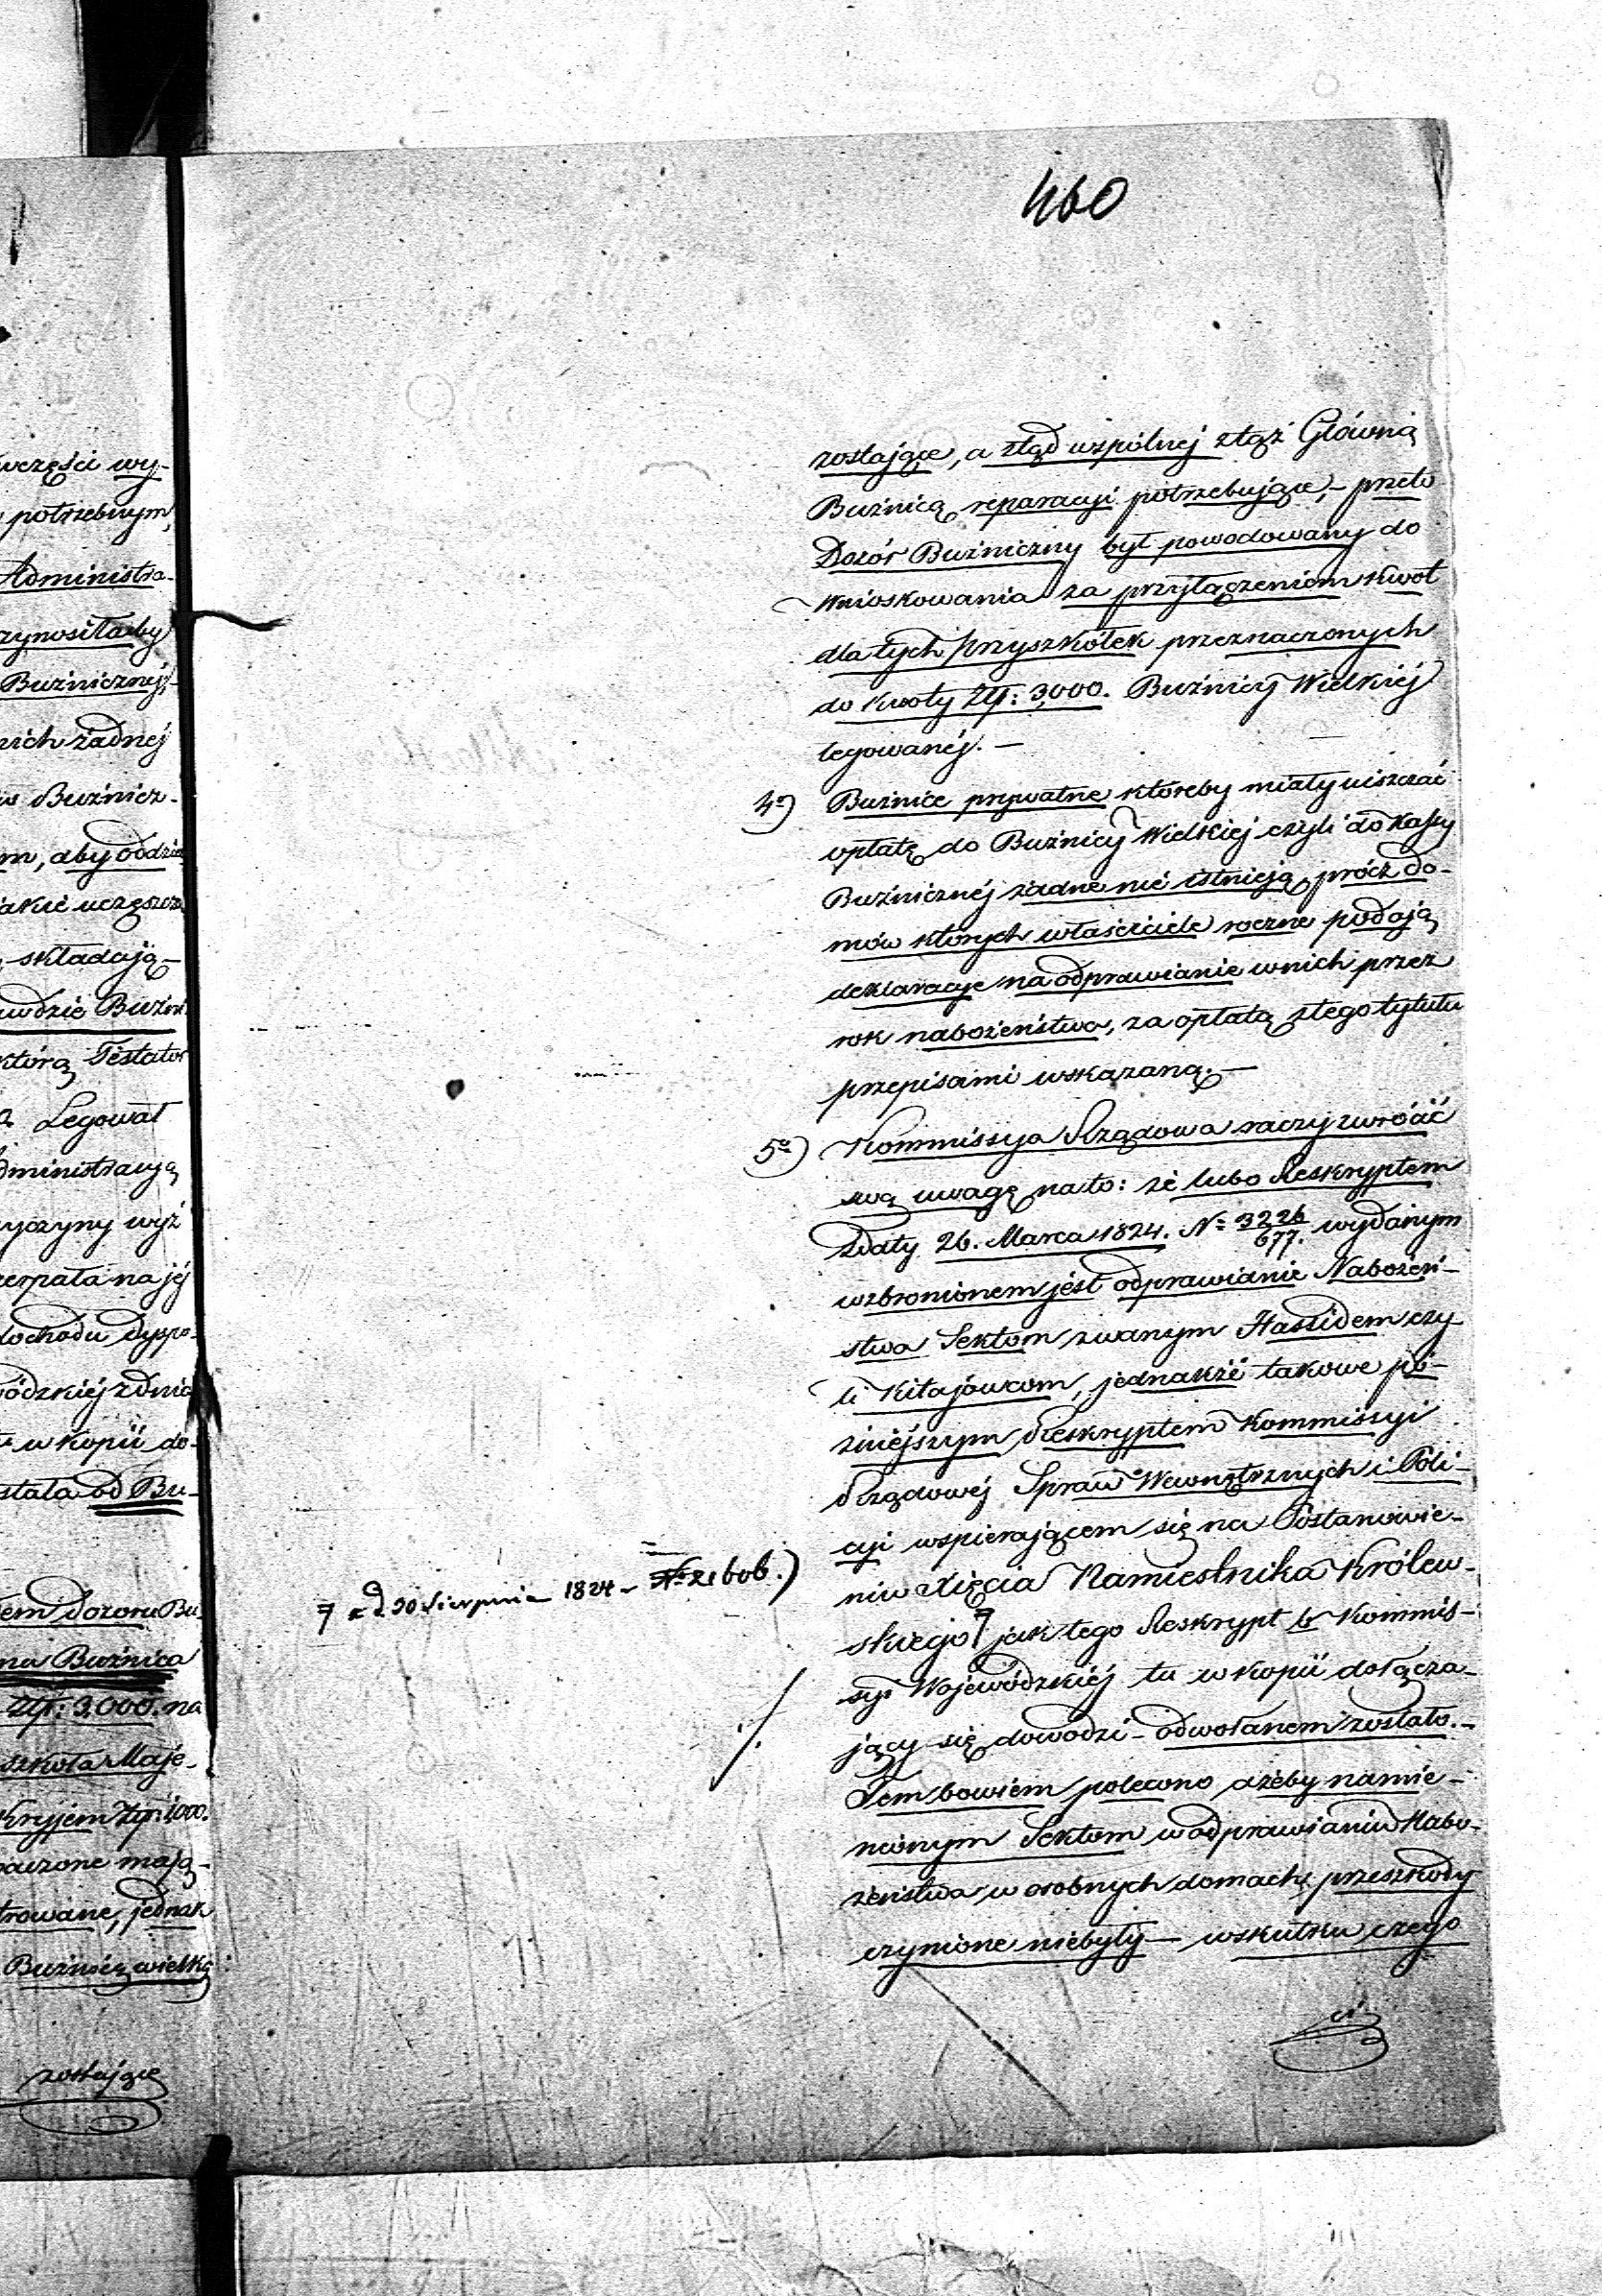 460
wczęści wy-
potrzebnym,
Administra-
zynosiłaby
Buźnicznéj,-
nich żadnej
Buźnicz-
m, aby oddzie
akie uczęszcza
składają-
Buźni
którą Testator
Legował
dministracyą
yczyny wyż
zerpała na jéj
dochodu dyspo-
ódzkiéj zdnia
w kopii do-
stała od Bu-
em Dozoru Bu-
na Buźnica
Złp: 3.000. na
szkoła Maje-
Kryjem Złp: 1000.
naczone mają-
trowane, jednak
Buźnicą wielką
zostające
zostające, a ztąd wspólnej ztąż Główną
Buźnicą reparacyi potrzebujące,- przeto
Dozór Buźniczny był powodowany do
wnioskowania za przyłączeniem kwot
dla tych przyszkółek przeznaczonych
do kwoty Złp: 3,000. Buźnicy Wielkiéj
legowanéj.-
4o) Buźnice prywatne któreby miały uiszczać
opłatę do Buźnicy Wielkiej czyli do Kassy
Buźnicznéj żadne nie istnieją, prócz do-
mów których właściciele roczne podają
deklaracye na odprawianie wnich przez
rok nabożeństwa, za opłatą ztego tytułu
przepisami wskazaną.-
5o) Kommissya Rządowa raczy zwróćić
swą uwagę na to: że lubo Reskryptem
zdaty 26. Marca 1824. No 3226/677. wydanym
wzbronionem jest odprawianie Nabożeń-
stwa Sektom zwanym Hassidem czy-
li Kitajowcom, jednakże takowe pó-
źniéjszym Reskryptem Kommissyi
Rządowéj Spraw Wewnętrznych i Poli-
cyi wspierającem się na Postanowie-
niu Xięcia Namiestnika Królew-
skiego 7 jak tego Reskrypt Kommis-
syi Wojewódzkiéj tu w kopii dołącza-
jący się dowodzi - odwołanem zostało.-
Tem bowiem polecono ażeby namie-
nionym Sektom w odprawianiu Nabo-
żeństwa w osobnych domach, przeszkody
czynione niebyły - wskutku czego
7 z d. 30 Sierpnia 1824 - No 21606.)